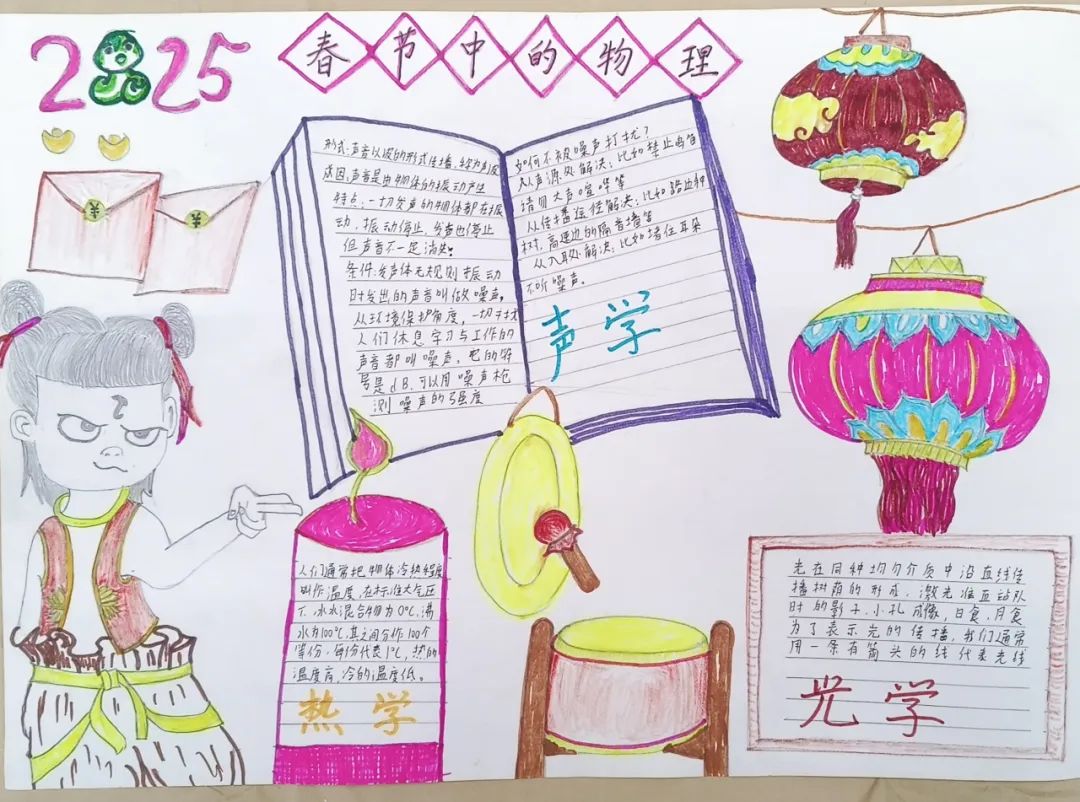 2025
春节中的物理
¥
¥
形式:声音以波的形式传播,
成因:声音是由物体的振动产生
特点:一切发声的物体都在振
动,振动停止,发声也停止
但声音不一定消失。
条件:发声体无规则振动
时发出的声音叫做噪声,
从环境保护角度,一切干扰
人们休息学习与工作的
声音都叫噪声,
号是dB,可以用噪声枪
测噪声的强度
如何不被噪声打扰?
从声源处解决:比如禁止鸣笛
请勿大声喧哗等
从传播途径解决:比如路边种
树,高速边的隔音墙等
从入耳处解决:比如堵住耳朵
不听噪声。
声学
人们通常把物体冷热程度
叫作温度,在标准大气压
下,冰水混合物为0℃,沸
水为100℃,其之间分作100个
等份,每份代表1℃,热的
温度高,冷的温度低。
热学
光在同种均匀介质中沿直线传
播树荫的形成,激光准直站队
时的影子,小孔成像,日食,月食
为了表示光的传播,我们通常
用一条有箭头的线代表光线
光学